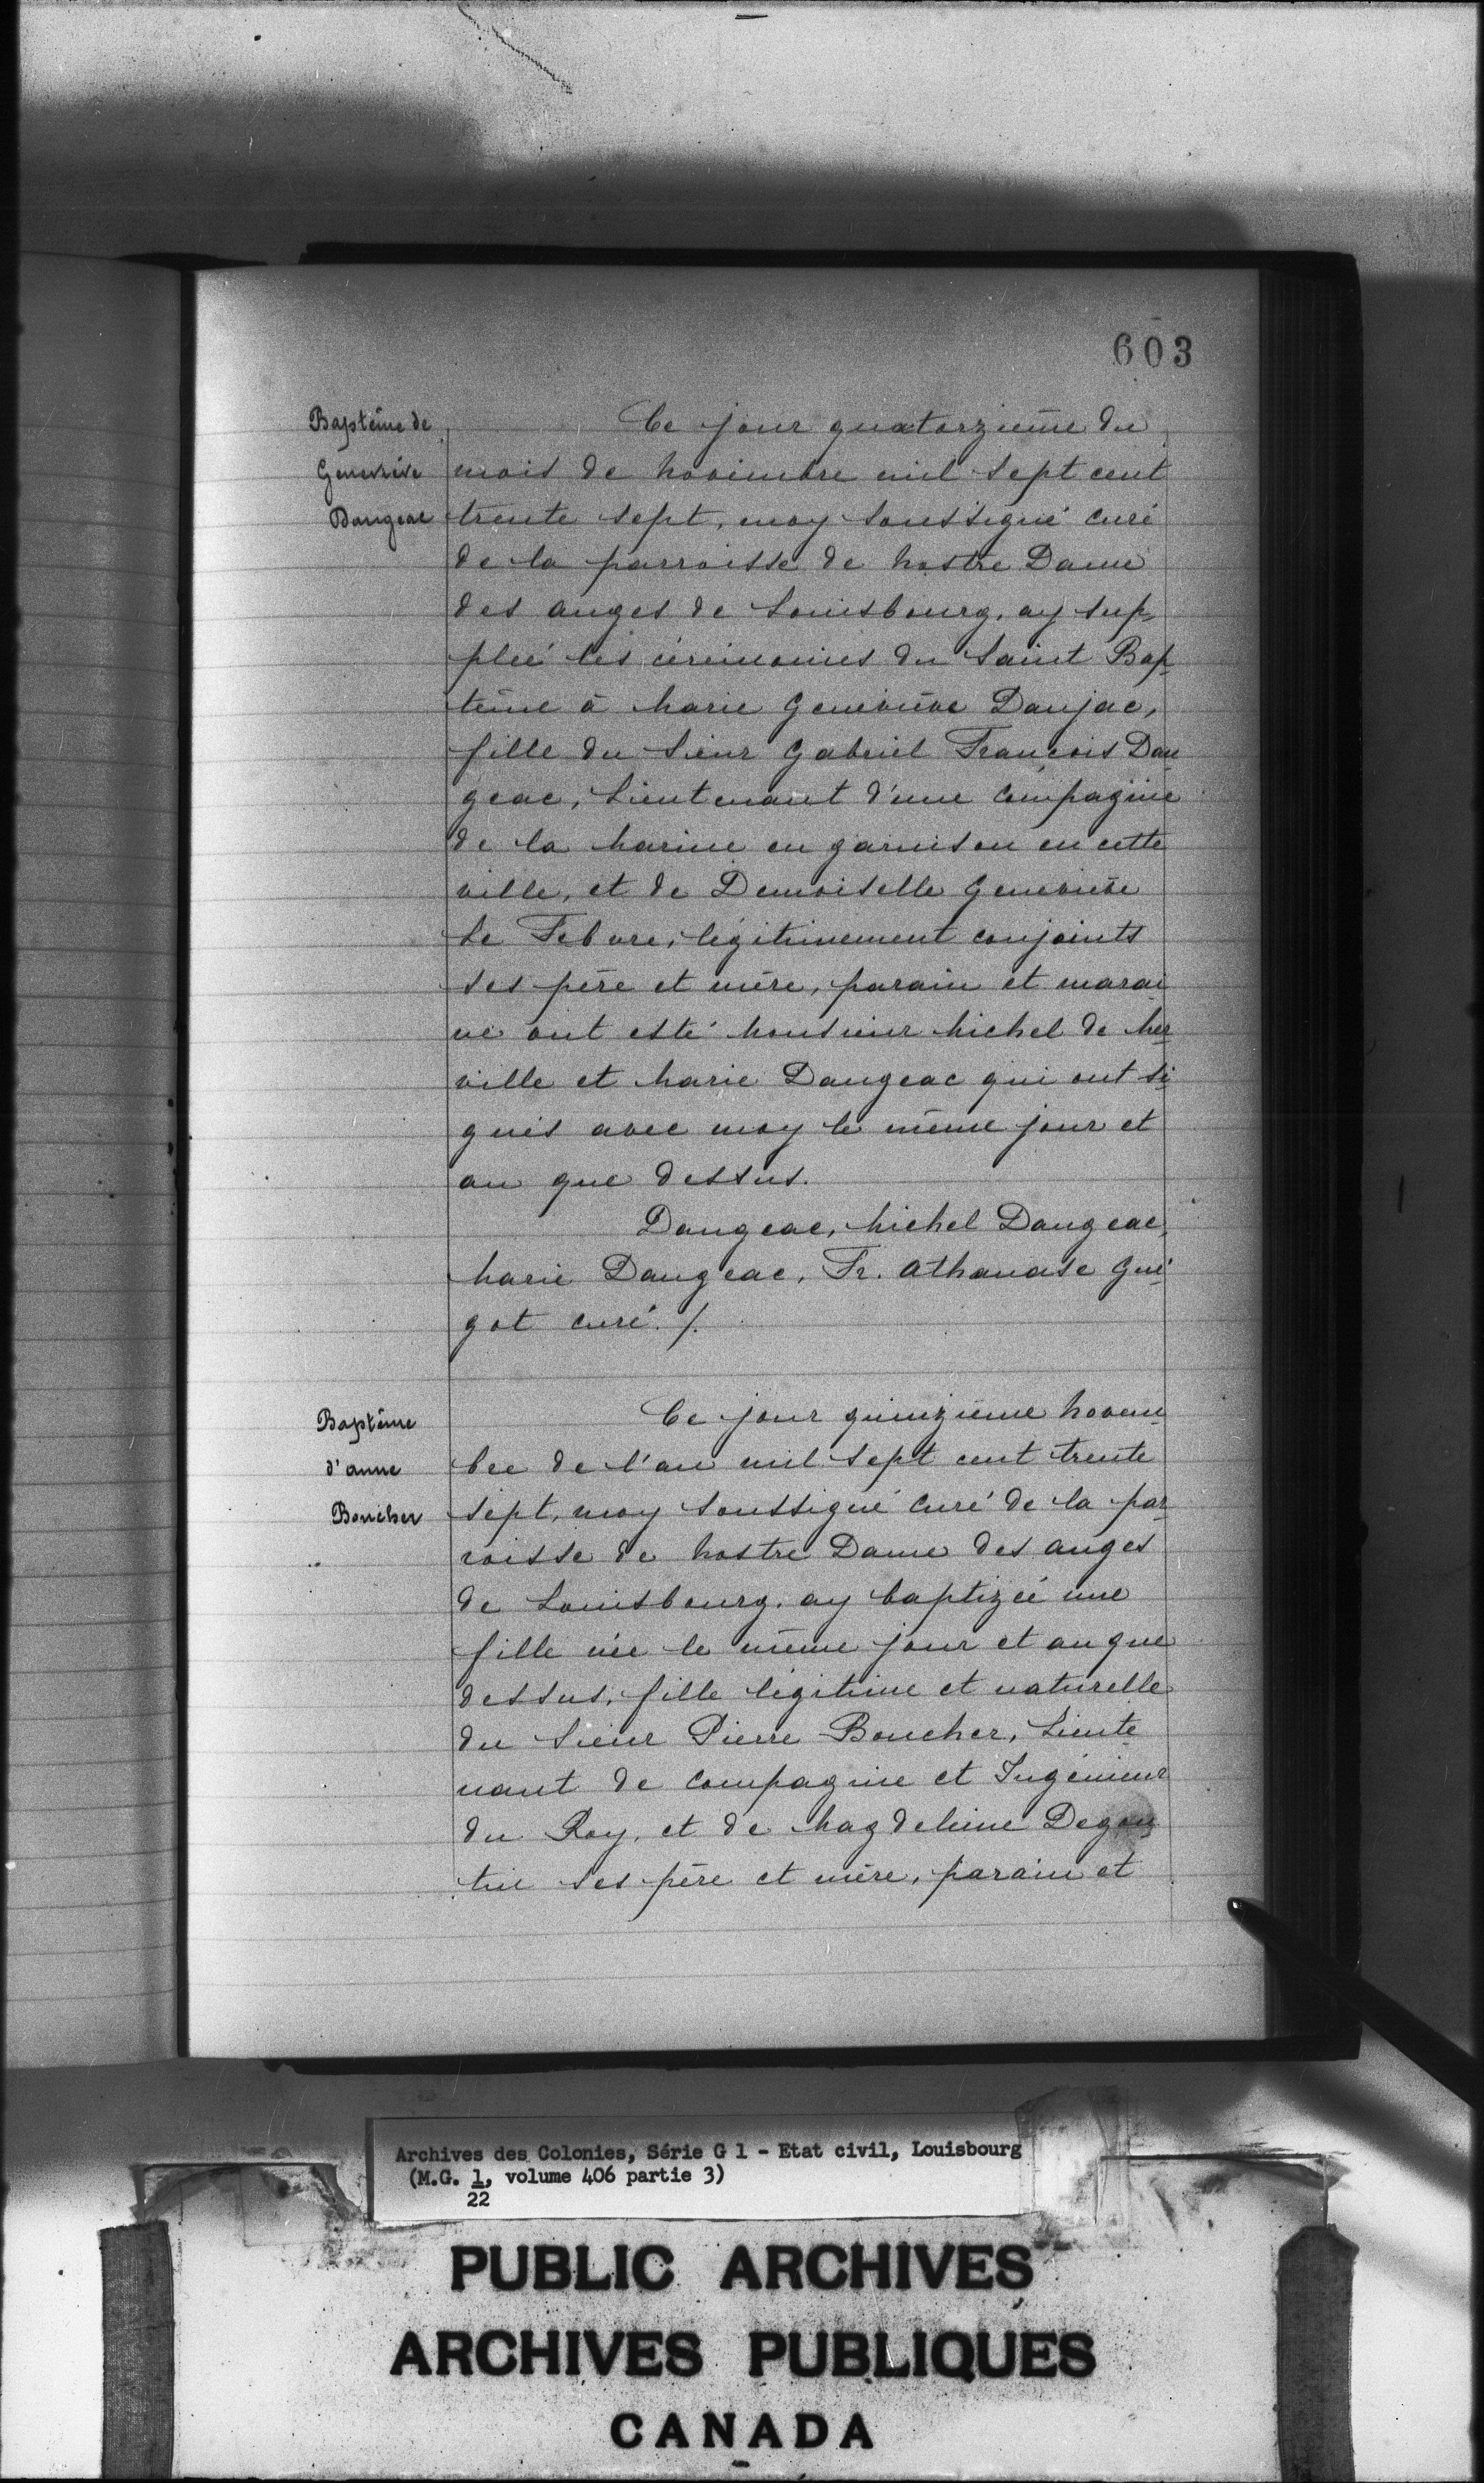 603
Baptême de
Geneviève
Dangeac
Ce jour quatorzième du
mois de novembre mil sept cent
trente sept, moy soussigné curé
de la parroisse de Nostre Dame
des anges de Louisbourg, ay sup-
pleé les cérémonies du Saint Bap-
tême à Marie Geneviève Danjac,
fille du Sieur Gabriel François Dan-
geac, Lieutenant d'une compagnie
de la Marine en garnison en cette
ville, et de Demoiselle Geneviève
Le Febvre, légitimement conjoints
ses père et mère, parain et marai-
ne ont esté Monsieur Michel de
ville et Marie Dangeac qui ont si-
gnés avec moy le même jour et
an que dessus.
Dangeac, Michel Dangeac,
Marie Dangeac, Fr. Athanase Gué-
got curé. /.
Baptême
d'anne
Boucher
Ce jour quinzième novem-
bre de l'an mil sept cent trente
sept, moy soussigné curé de la par-
roisse de Nostre Dame des anges
de Louisbourg, ay baptizée une
fille née le même jour et an que
dessus, fille légitime et naturelle
du Sieur Pierre Boucher, Lieute-
nant de compagnie et Ingénieur
du Roy, et de Magdeleine Degou-
tin ses père et mère, parain et
Archives des Colonies, Série G 1 - Etat civil, Louisbourg
(M.G. 1, volume 406 partie 3)
22
PUBLIC ARCHIVES
ARCHIVES PUBLIQUES
CANADA